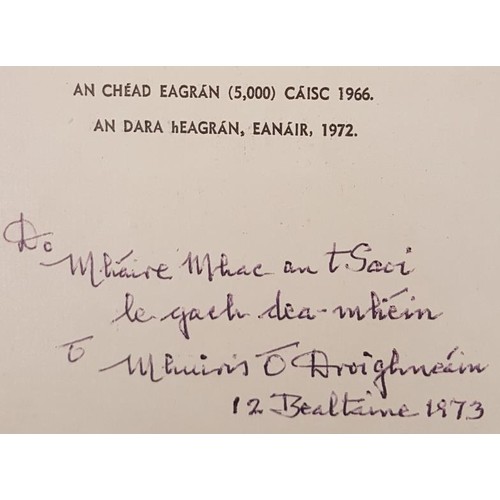 AN CHÉAD EAGRÁN (5,000) CÁISC 1966.
AN DARA hEAGRÁN, EANÁIR, 1972.
Do
Mháire Mhac an tSaoi
le gach dea-mhéin
Ó Mhuiris Ó Droighneáin
12 Bealtaine 1973